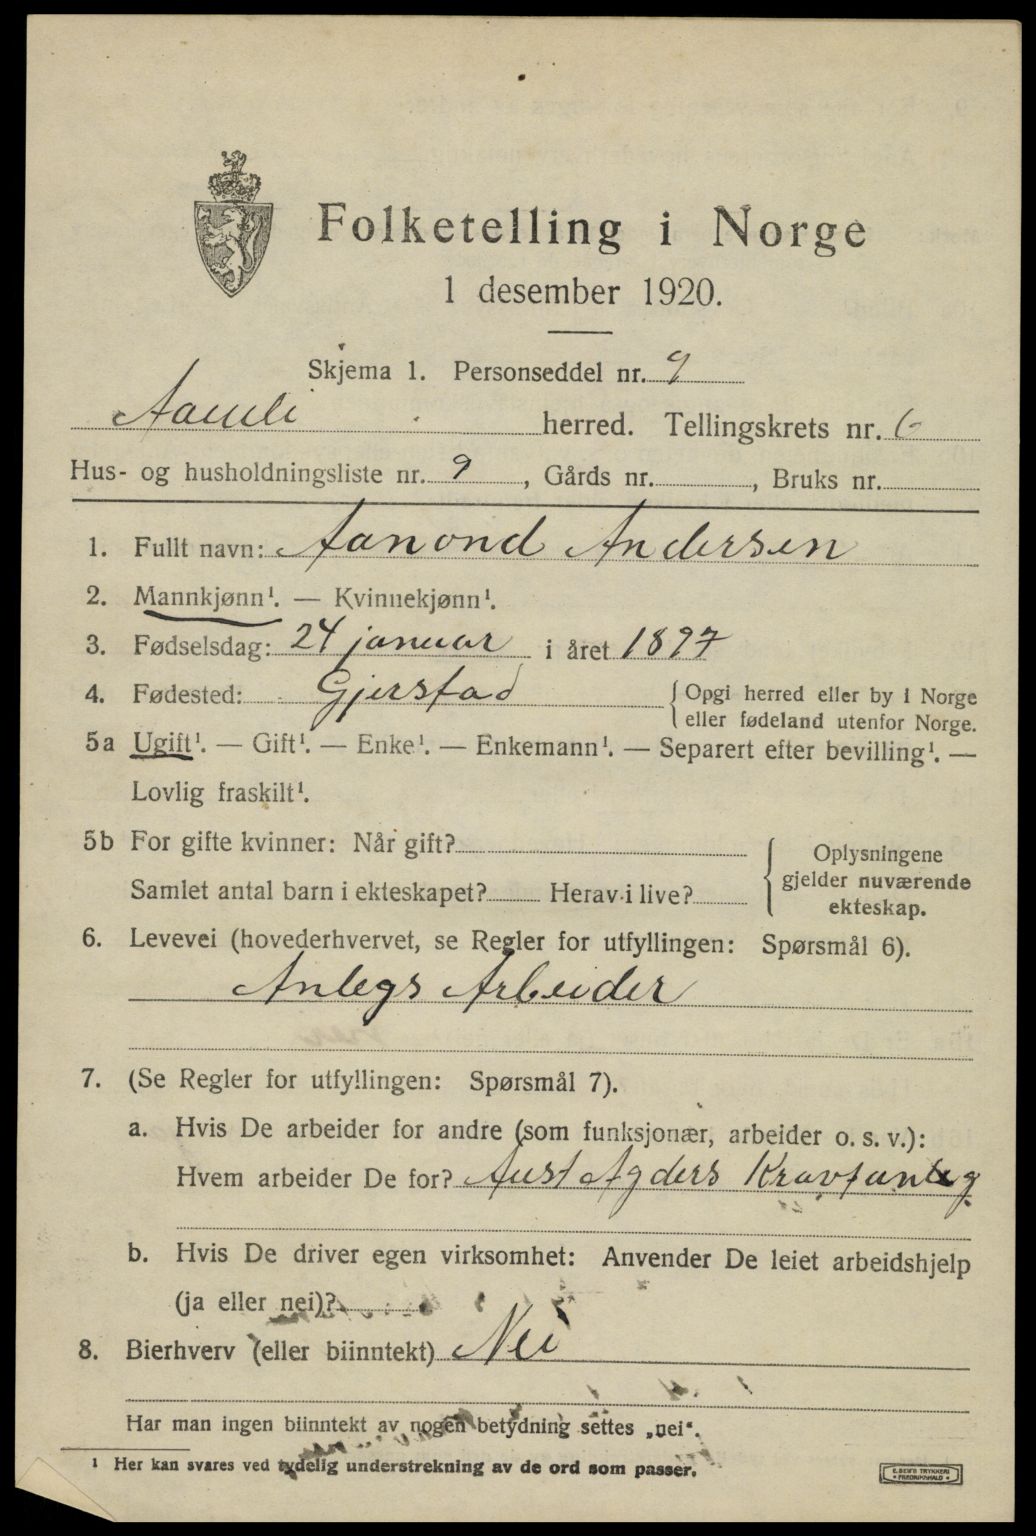 Folketelling i Norge
1 desember 1920.
Skjema 1. Personseddel nr. 9
Aamli herred. Tellingskrets nr. 6
Hus- og husholdningsliste nr. 9, Gårds nr. , Bruks nr.
1. Fullt navn: Aanond Andersen
2. Mannkjønn¹. — Kvinnekjønn¹.
3. Fødselsdag: 24 januar i året 1897
4. Fødested: Gjerstad { Opgi herred eller by i Norge
eller fødeland utenfor Norge.
5a Ugift¹. — Gift¹. — Enke¹. — Enkemann¹. — Separert efter bevilling¹. —
Lovlig fraskilt¹.
5b For gifte kvinner: Når gift?
Samlet antal barn i ekteskapet? Herav i live?
{ Oplysningene
gjelder nuværende
ekteskap.
6. Levevei (hovederhvervet, se Regler for utfyllingen: Spørsmål 6).
Anlegs Arbeider
7. (Se Regler for utfyllingen: Spørsmål 7).
a. Hvis De arbeider for andre (som funksjonær, arbeider o. s. v.):
Hvem arbeider De for? Aust Agders Kravfanleg
b. Hvis De driver egen virksomhet: Anvender De leiet arbeidshjelp
(ja eller nei)?
8. Bierhverv (eller biinntekt) Nei
Har man ingen biinntekt av nogen betydning settes „nei“.
¹ Her kan svares ved tydelig understrekning av de ord som passer.
E. SEM'S TRYKKERI
FREDRIKSHALD